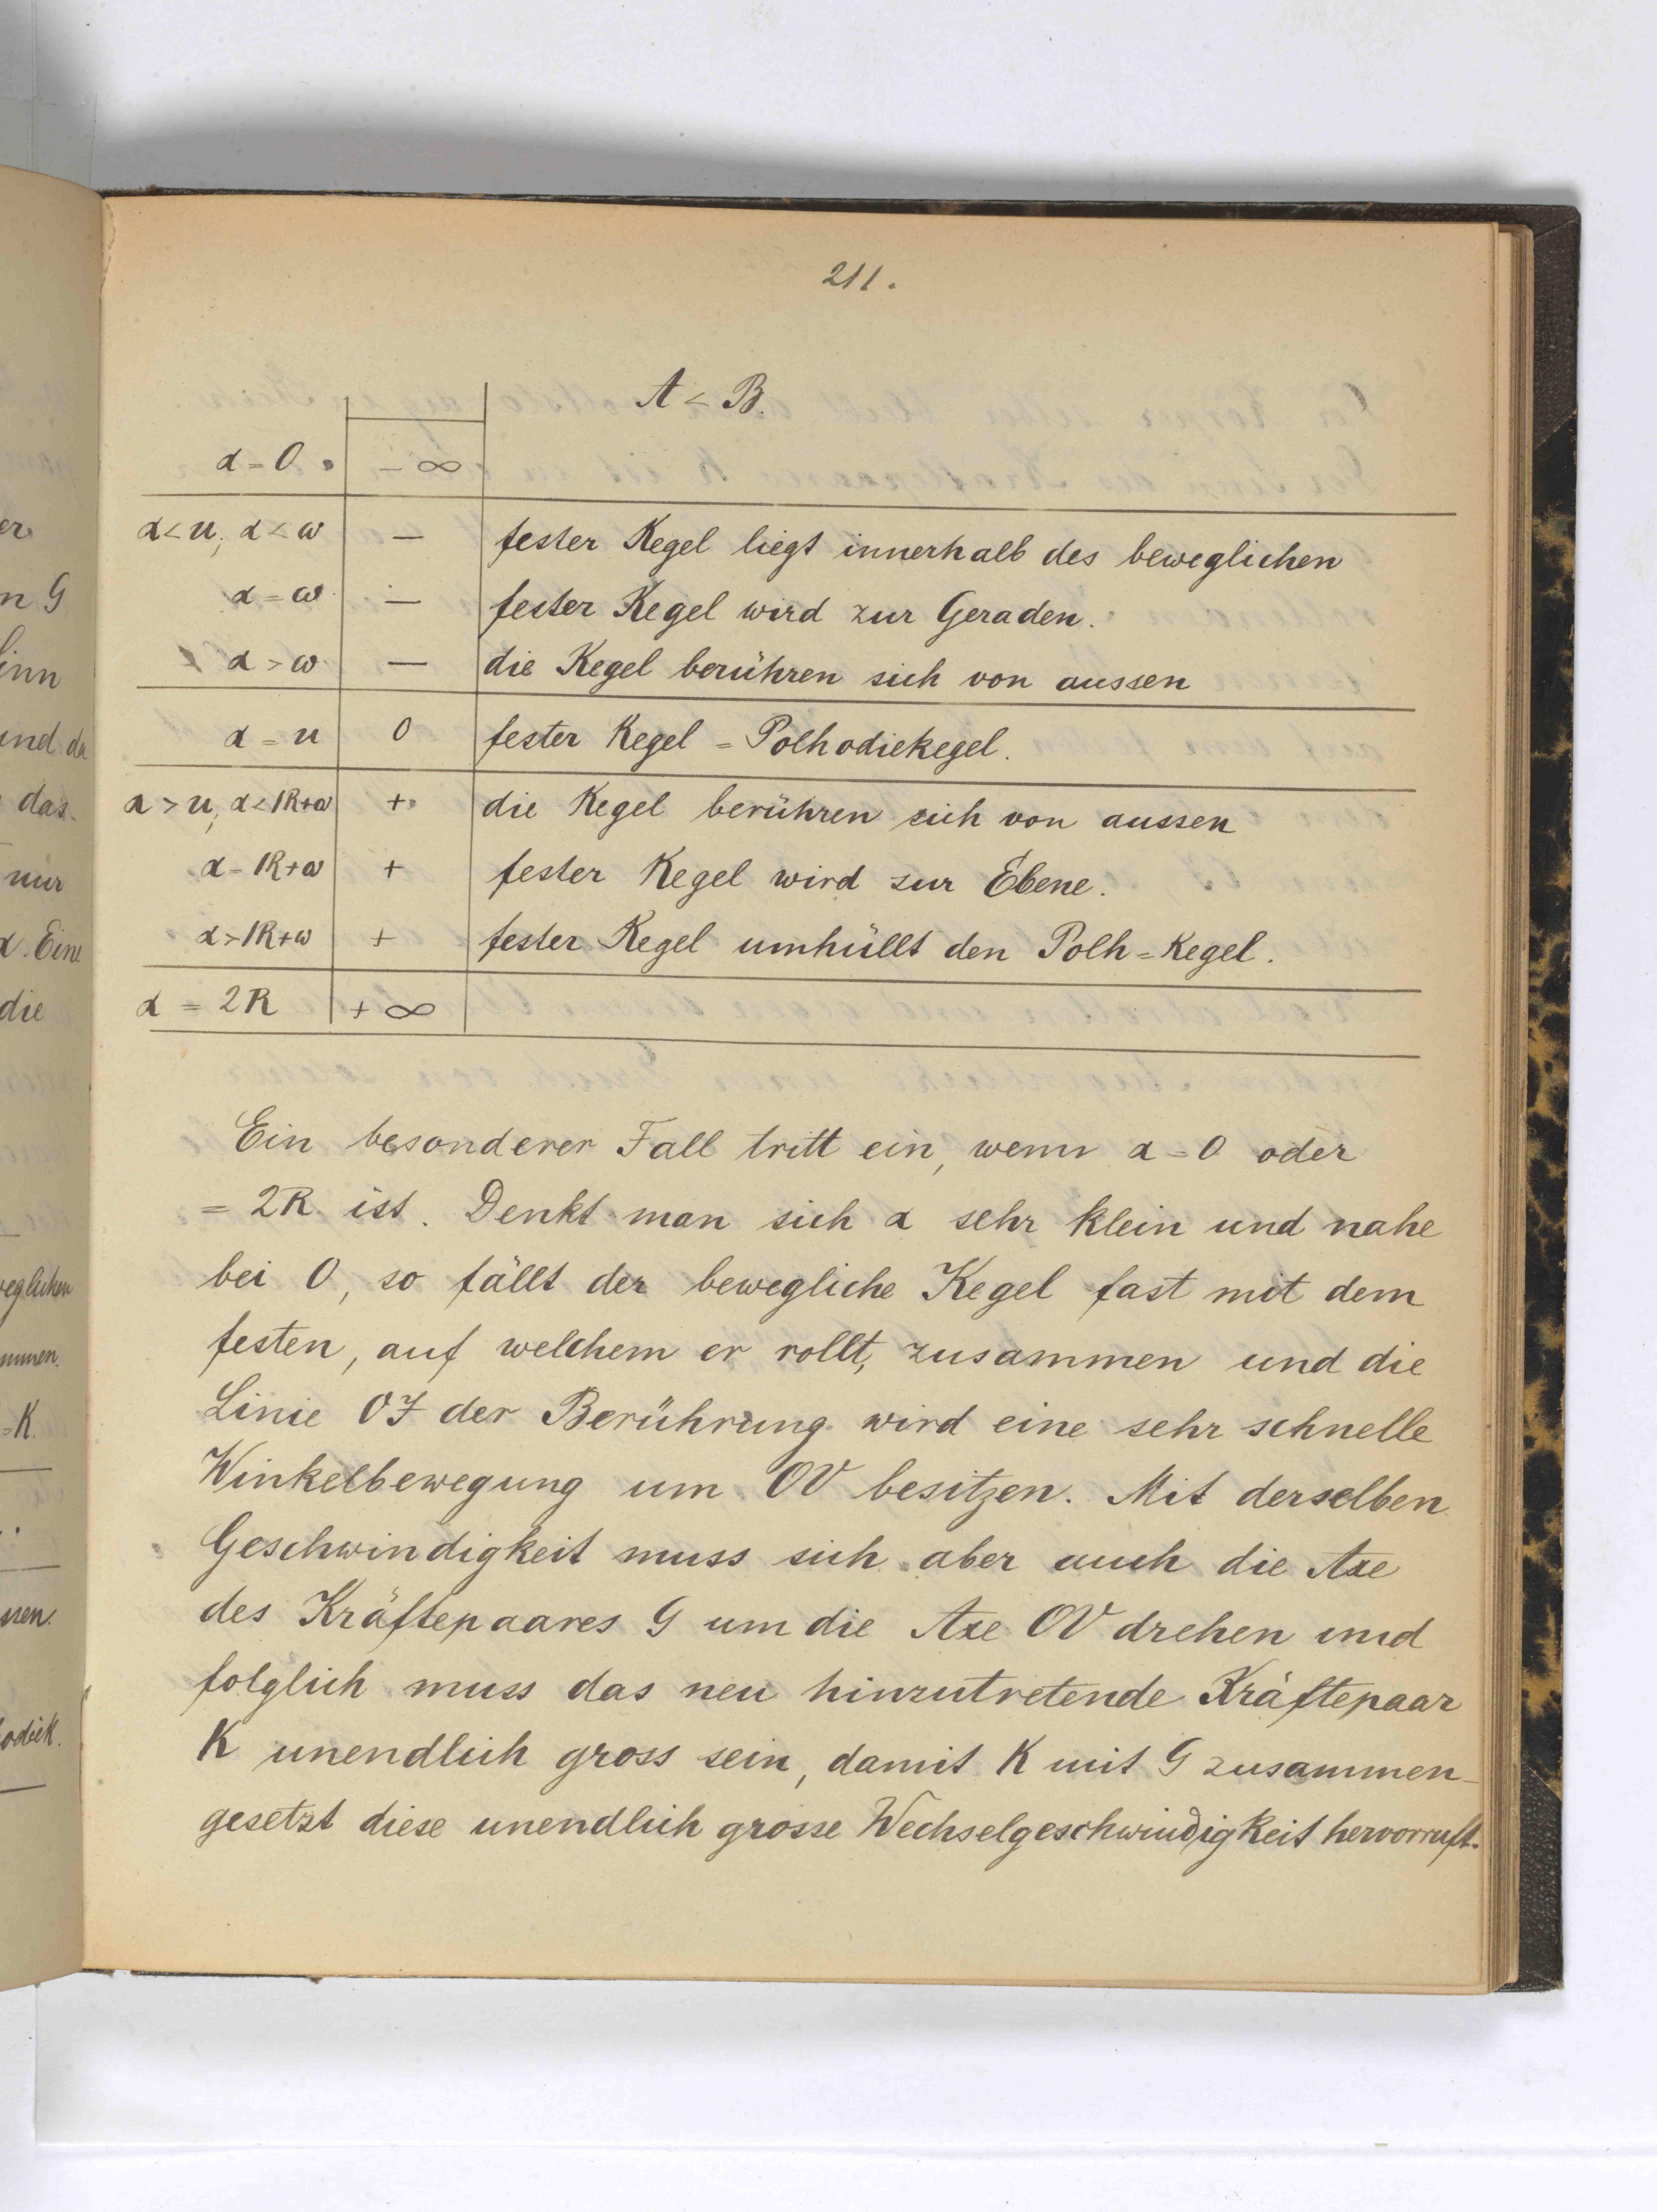 211.
A < B.
α = 0. − ∞
α < u; α < ω − fester Kegel liegt innerhalb des beweglichen
α = ω. − fester Kegel wird zur Geraden.
α > ω. − die Kegel berühren sich von aussen
α = u 0 fester Kegel = Polhodiekegel.
α > u; α < 1R+ω + die Kegel berühren sich von aussen
α = 1R+ω + fester Kegel wird zur Ebene.
α > 1R+ω + fester Kegel umhüllt den Polh=Kegel.
α = 2R + ∞
Ein besonderer Fall tritt ein, wenn α = 0 oder
= 2R ist. Denkt man sich α sehr klein und nahe
bei 0, so fällt der bewegliche Kegel fast mit dem
festen, auf welchem er rollt, zusammen und die
Linie OJ der Berührung wird eine sehr schnelle
Winkelbewegung um OV besitzen. Mit derselben
Geschwindigkeit muss sich aber auch die Axe
des Kräftepaares G um die Axe OV drehen und
folglich muss das neu hinzutretende Kräftepaar
K unendlich gross sein, damit K mit G zusammen-
gesetzt diese unendlich grosse Wechselgeschwindigkeit hervorruft.
er
n G
inn
und da
das
nur
α. Eine
die
weglichen
mmen.
=K.
ssen.
hodiek.